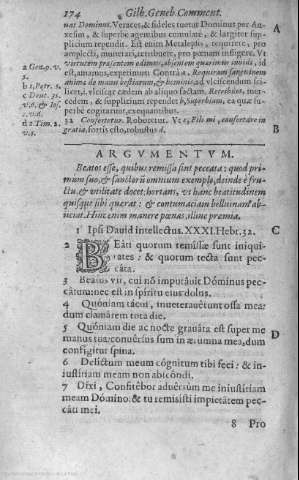 174 Gilb. Geneb. Comment.
nat Dominus. Veraces, & fideles tuetur Dominus per An-
xesim, & superbe agentibus cumulatè, & largiter sup-
plicium rependit. Est enim Metalepsis, requirere, pro
amplecti, mutuari, retribuere, pro pœnam infligere. Vt
virtutem præsentem odimus, absentem quærimus invidi, id
est, amamus, expetimus. Contrà a. Requiram sanguinem
animæ de manu bestiarum, & hominis, ad, vlciscendi, sci-
licet, vlciscar cædem ab aliquo factam. Retribuet, mer-
cedem, & supplicium rependet b, Superbiam, ea quæ su-
perbè cogitantur, exequuntibus.
a Gen. 9. v.
5.
b 1. Petr. 5
& Deut. 32
32 Confortetur. Roboretur. Vt c, Fili mi, confortare in
gratia, fortis esto, robustus
c 2. Tim. 2.
v. 1.
A
B
ARGVMENTVM.
Beatos esse, quibus remissa sint peccata: quod pri-
mum suo, & sanctorū omnium exemplo, deinde è fru-
ctu, & vtilitate docet: hortans, vt hanc beatitudinem
quisque sibi quærat: & contumaciam belluinam ab-
iiciat. Hinc enim manere pœnas, illinc præmia.
1 Ipsi Dauid intellectus. XXXI. Hebr. 32. C
2 BEáti quorum remíssæ sunt iniqui-
tátes: & quorum tecta sunt pec-
cáta.
3 Beátus vir, cui nō imputáuit Dóminus pec-
cátum: nec est in spíritu eius dolus.
4 Quóniam tácui, inueterauérunt ossa mea:
dum clamárem tota die.
5 Quóniam die ac nocte grauáta est super me
manus tua: conuérsus sum in ærúmna mea, dum
confígitur spina. D
6 Delíctum meum cógnitum tibi feci: & in-
iustítiam meam non abscóndi.
7 Dixi, Confitébor aduérsùm me iniustítiam
meam Dómino: & tu remisísti impietátem pec-
cáti mei.
8 Pro